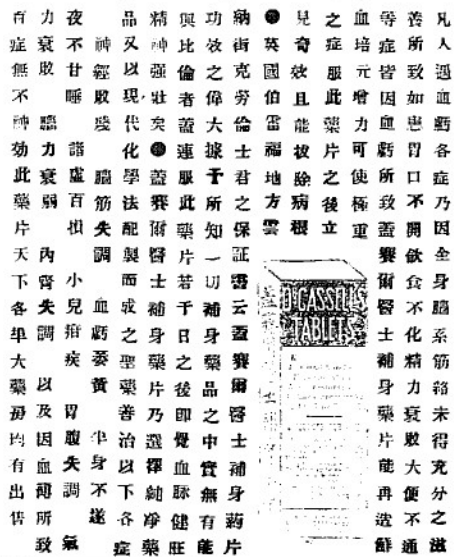 凡人遇血虧各症乃因全身腦系筋絡未得充分之滋
善所致如患胃口不開飲食不化精力衰敗大便不通
等症皆因血虧所致蓋賽爾醫士補身藥片能再造鮮
血培元增力可使極重
之症服此藥片之後立
見奇效且能拔除病根
●英國伯雷福地方雲
納街克勞倫士君之保証書云蓋賽爾醫士補身藥片
功效之偉大據予所知一切補身藥品之中實無有能
與比倫者蓋連服此藥片若干日之後即覺血脉健旺
精神強壯矣●蓋賽爾醫士補身藥片乃選擇純凈藥
品又以現代化學法配製而成之聖藥善治以下各症
神經敗殘 腦筋失調 血虧萎黃 半身不遂
夜不甘睡 諸虛百損 小兒疳疾 胃腹失調 氣
力衰敗 腦力衰弱 內腎失調 以及因血薄所致
百症無不神効此藥片天下各埠大藥房均有出售
DR CASSELL'S
TABLETS